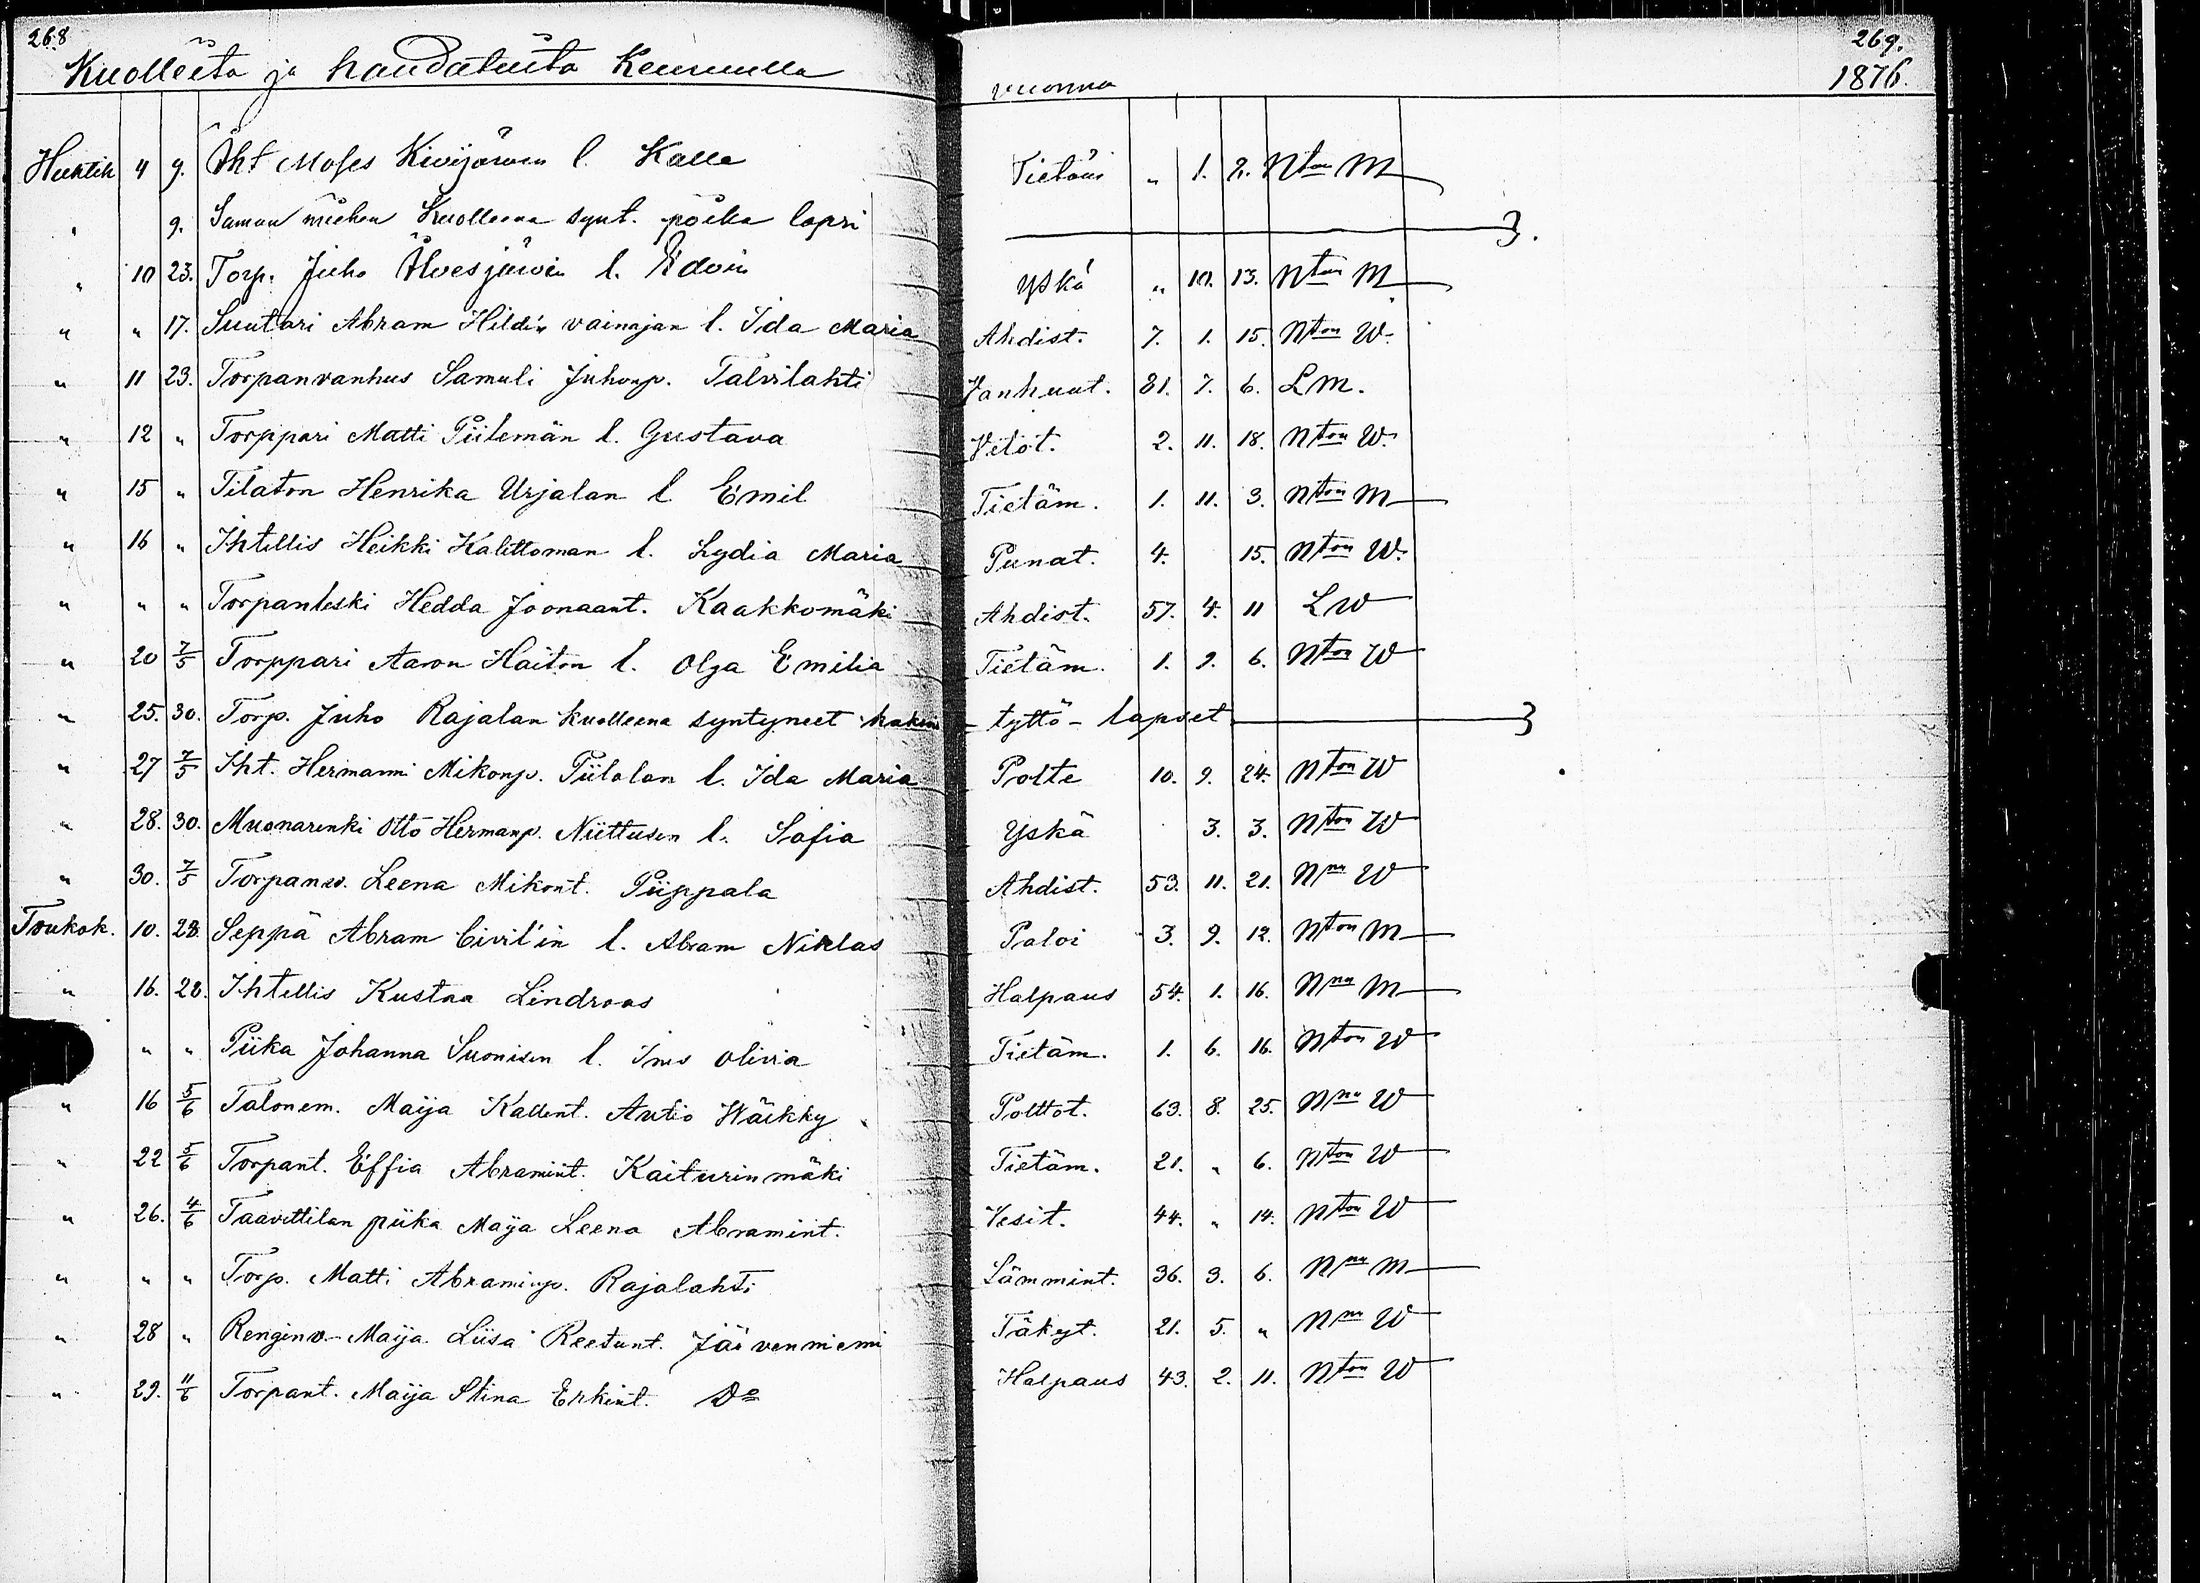 268
Kuolleita ja haudatuita Keuruulla
vuonna
269.
1876.
Huhtik 4 9. Iht Moses Kivijärven l. Kalle Tietäm „ 1. 2. Nton M
„ 9. Saman miehen kuolleena synt. poika lapsi
„ 10 23. Torp. Juho Ahvesjärvin l. Edvin Yskä „ 10. 13. Nton M
„ „ 17. Suutari Abram Hildin vainajan l. Ida Maria Ahdist. 7. 1. 15. Nton W.
„ 11 23. Torpanvanhus Samuli Juhonp. Talvilahti Vanhuut. 81. 7. 6. L M.
„ 12 „ Torppari Matti Piilemän l. Gustava Vetot. 2. 11. 18. Nton W.
„ 15 „ Tilaton Henrika Urjalan l Emil Tietäm. 1. 11. 3. Nton M
„ 16 „ Ihtellis Heikki Kalettoman l. Lydia Maria Punat. 4. 15. Nton W.
„ „ „ Torpanleski Hedda Joonaant. Kaakkomäki Ahdist. 57. 4. 11 L W
„ 20 7/5 Torppari Aaron Haiton l. Olga Emilia Tietäm. 1. 9. 6. Nton W
„ 25. 30. Torp. Juho Rajalan kuolleena syntyneet kaksi tyttö-lapset
„ 27 7/5 Iht. Hermanni Mikonp. Piilolan l. Ida Maria Polte 10. 9. 24. Nton W
„ 28. 30. Muonarenki Otto Hermanp. Niittusen l. Sofia Yskä 3. 3. Nton W
„ 30. 7/5 Torpanv. Leena Mikont. Piippala Ahdist. 53. 11. 21. Nnu W
Toukok. 10. 28. Seppä Abram Civil'in l. Abram Niklas Paloi 3. 9. 12. Nton M
„ 16. 28. Ihtellis Kustaa Lindroos Halpaus 54. 1. 16. Nnu M
„ „ Piika Johanna Suonisen l. Ines Olivia Tietäm. 1. 6. 16. Nton W
„ 16 5/6 Talonem. Maija Kallent. Autio Häikky Polttot. 63. 8. 25. Nnu W
„ 22 5/6 Torpant. Effia Abramint. Kaiturinmäki Tietäm. 21. „ 6. Nton W
„ 26. 4/6 Taavettilan piika Maija Leena Abramint. Vesit. 44. „ 14. Nton W
„ „ „ Torp. Matti Abraminp. Rajalahti Lämmint. 36. 3. 6. Nnu M
„ 28 „ Renginv. Maija Liisa Reetunt. Järvenniemi Täkyt. 21. 5. „ Nnu W
„ 29. 11/6 Torpant. Maija Stina Erkint. Do Halpaus 43. 2. 11. Nton W